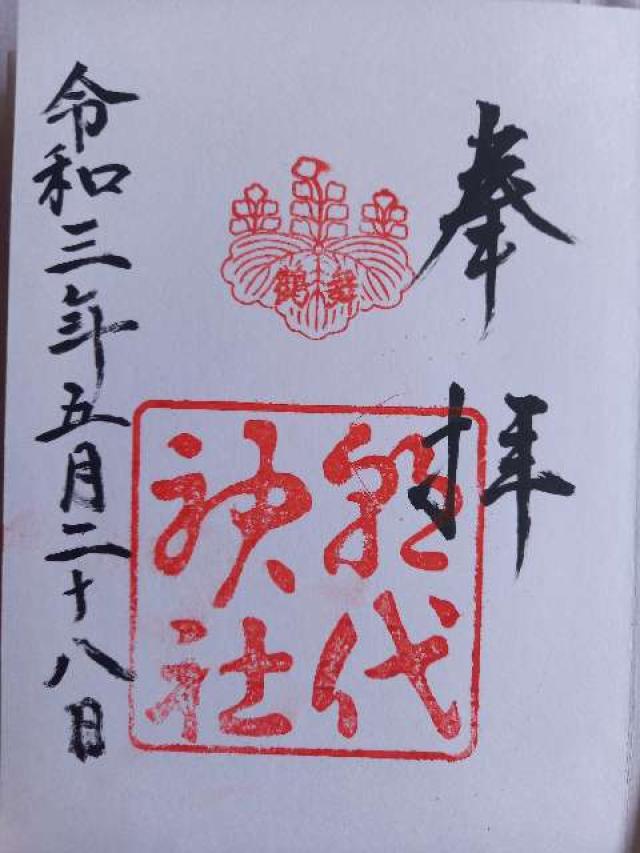 奉拝
舞鶴
朝代
神社
令和三年五月二十八日